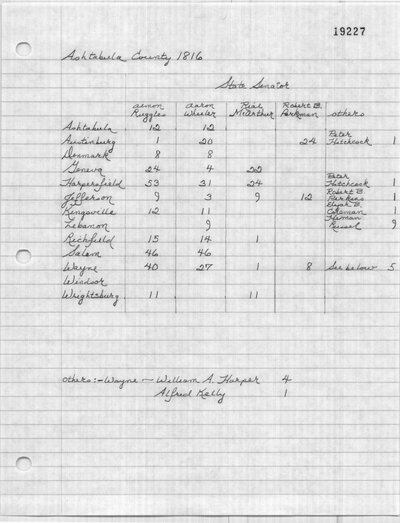 19227
Ashtabula County 1816
State Senator
Almon Ruggles | Aaron Wheeler | Rial McArthur | Robert B. Parkman | Others
Ashtabula 12 12
Austinburg 1 20 24 Peter Hitchcock 1
Denmark 8 8
Geneva 24 4 22
Harpersfield 53 31 24 Peter Hitchcock 1
Jefferson 9 3 9 12 Robert B. Parkins 1
Kingsville 12 11 Elijah B. Coleman 1
Lebanon 9 Heman Russel 9
Richfield 15 14 1
Salem 46 46
Wayne 40 27 1 8 See below 5
Windsor
Wrightsburg 11 11
Others:- Wayne — William A. Harper 4
Alfred Kelly 1